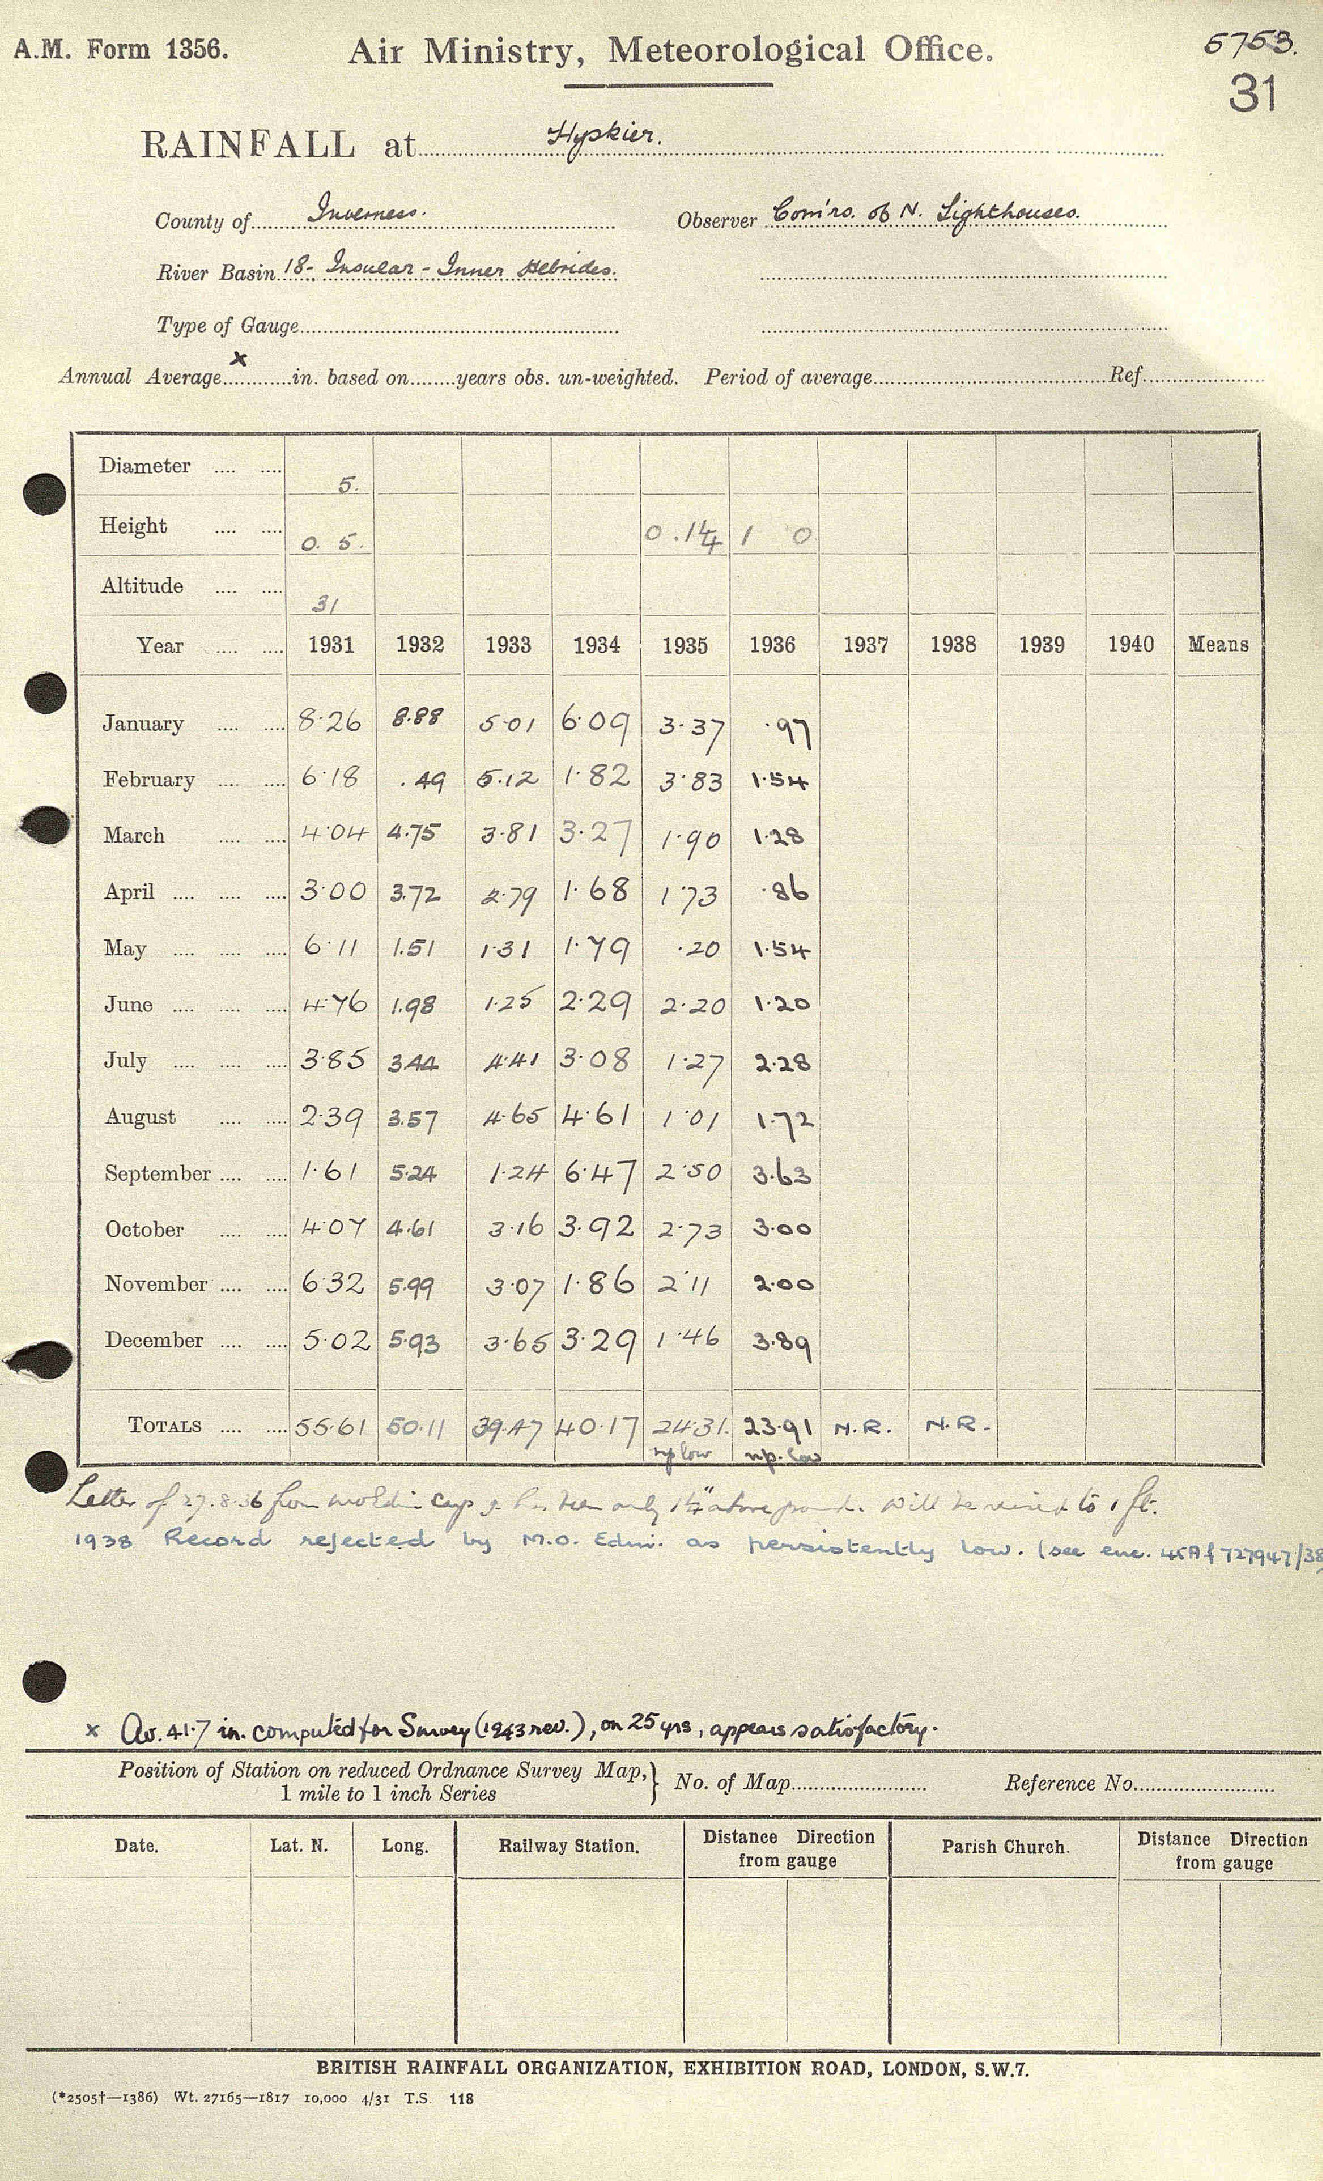 A.M. Form 1356. Air Ministry, Meteorological Office. 5753.
31
RAINFALL at Hyskier.
County of Inverness. Observer Com'rs. of N. Lighthouses.
River Basin 18- Insular - Inner Hebrides.
Type of Gauge
x
Annual Average in. based on years obs. un-weighted. Period of average Ref.
Diameter 5.
Height 0. 5. 0 .1¼ 1 0
Altitude 31
Year 1931 1932 1933 1934 1935 1936 1937 1938 1939 1940 Means
January 8.26 8.88 5.01 6.09 3.37 .97
February 6.18 .49 5.12 1.82 3.83 1.54
March 4.04 4.75 3.81 3.27 1.90 1.28
April 3.00 3.72 2.79 1.68 1.73 .86
May 6.11 1.51 1.31 1.79 .20 1.54
June 4.76 1.98 1.25 2.29 2.20 1.20
July 3.85 3.44 4.41 3.08 1.27 2.28
August 2.39 3.57 4.65 4.61 1.01 1.72
September 1.61 5.24 1.24 6.47 2.50 3.63
October 4.07 4.61 3.16 3.92 2.73 3.00
November 6.32 5.99 3.07 1.86 2.11 2.00
December 5.02 5.93 3.65 3.29 1.46 3.89
TOTALS 55.61 50.11 39.47 40.17 24.31. 23.91 N.R. N.R.
np low np. low
Letter of 27.8.36 been only 1¼" above ground. Will be raised to 1 ft.
1938 Record rejected by M.O. Edin. as persistently low. (see enc. 45A f 727947/38
x Av. 41.7 in. computed for Survey (1943 rev.), on 25 yrs, appears satisfactory.
Position of Station on reduced Ordnance Survey Map, } No. of Map Reference No.
1 mile to 1 inch Series
Date. Lat. N. Long. Railway Station. Distance Direction from gauge Parish Church. Distance Direction from gauge
BRITISH RAINFALL ORGANIZATION, EXHIBITION ROAD, LONDON, S.W.7.
(*2505†—1386) Wt. 27165—1817 10,000 4/31 T.S. 118